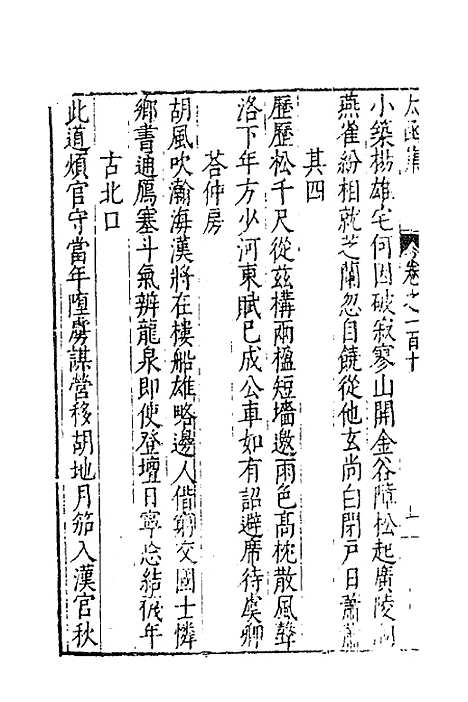 太函集 卷之一百十
小築楊雄宅何因破寂寥山開金谷障松起廣陵
燕雀紛相就芝蘭忽自饒從他玄尚白閉戶日蕭蕭
其四
歷歷松千尺從茲構兩楹短墻邀雨色高枕散風聲
洛下年方少河東賦已成公車如有詔避席待虞卿
荅仲房
胡風吹瀚海漢將在樓船雄略邊人借窮交國士憐
鄉書通鴈塞斗氣辨龍泉即使登壇日寧忘結襪年
古北口
此道煩官守當年墮虜謀營移胡地月笳入漢宮秋